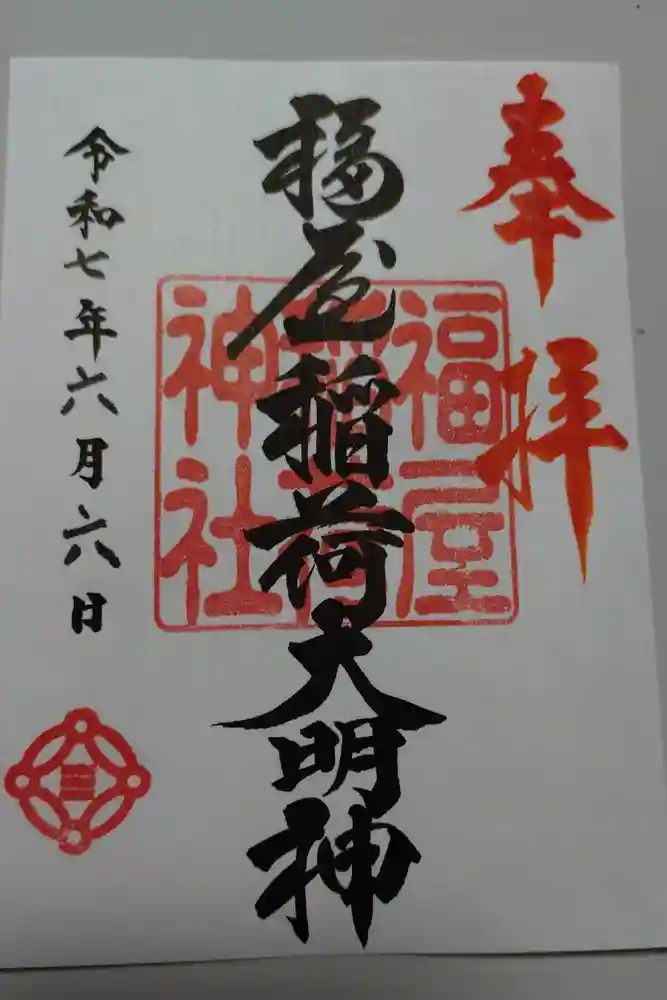 奉拝
福屋稲荷大明神
福屋
稲荷
神社
令和七年六月六日
三